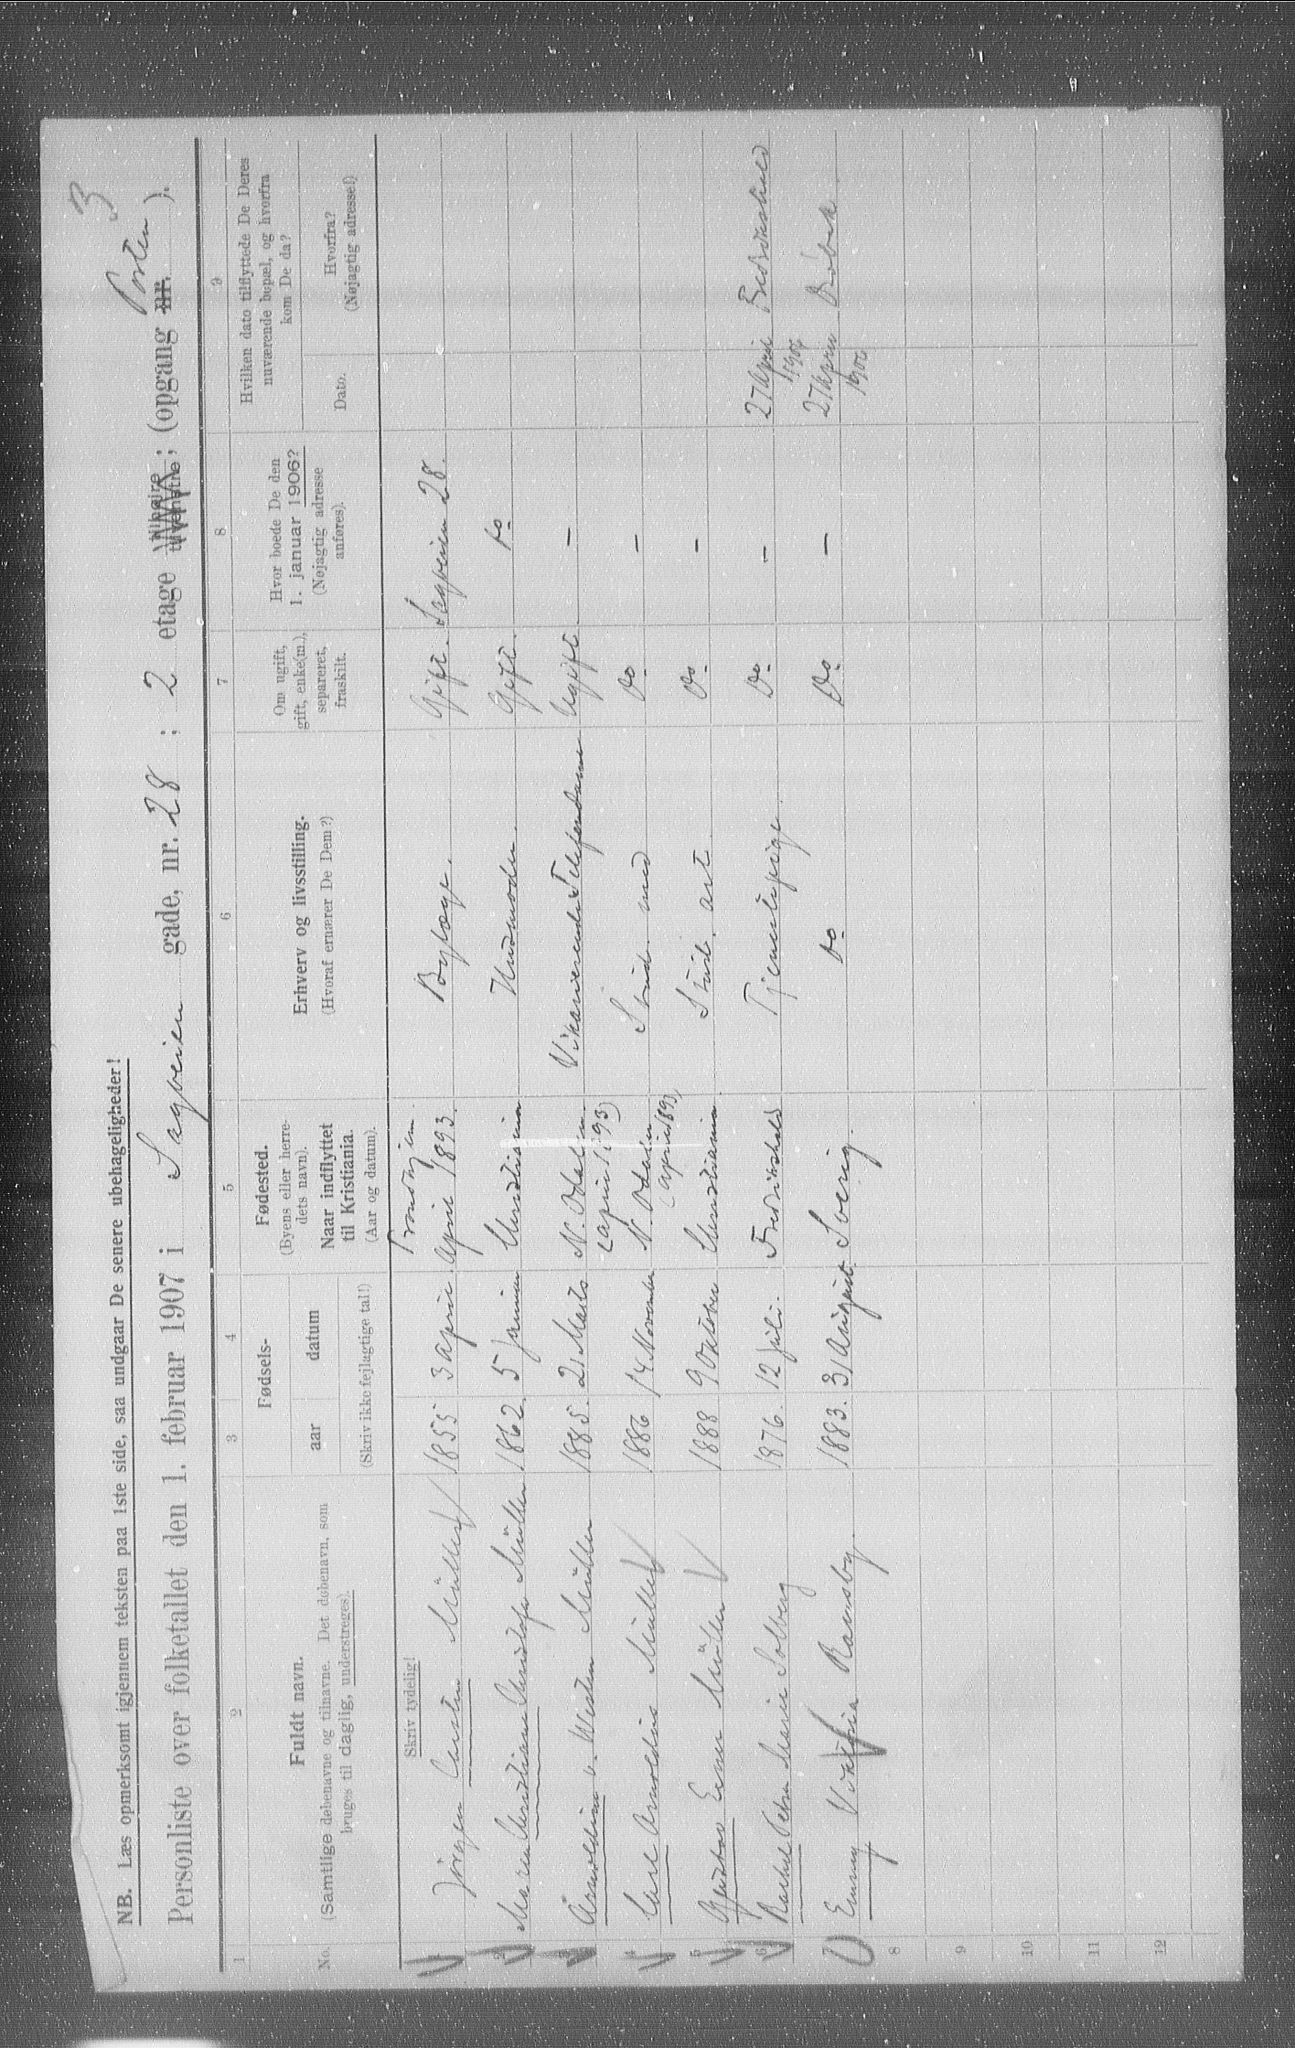 3
NB. Læs opmerksomt igjennem teksten paa 1ste side, saa undgaar De senere ubehageligheder!
Personliste over folketallet den 1. februar 1907 i Sagveien gade, nr. 28 ; 2 etage ; (opgang nr. Porten ).
1 2 3 4 5 6 7 8 9
No. Fuldt navn. (Samtlige døbenavne og tilnavne. Det døbenavn, som bruges til daglig, understreges). Fødsels- aar datum (Skriv ikke fejlagtige tal!) Fødested. (Byens eller herredets navn). Naar indflyttet til Kristiania. (Aar og datum). Erhverv og livsstilling. (Hvoraf ernærer De Dem?) Om ugift, gift, enke(m.), separeret, fraskilt. Hvor boede De den 1. januar 1906? (Nøjagtig adresse anføres). Hvilken dato tilflyttede De Deres nuværende bopæl, og hvorfra kom De da? Dato. Hvorfra? (Nøjagtig adresse!)
Skriv tydelig!
1 Jørgen Carsten Müller 1855 3 april Trondhjem. April 1893. Bylæge. Gift. Sagveien 28.
2 Maren Christiane Müller 1862. 5 Januar Christiania Husmoder. Gift. do
3 Arnoldine v. Westen Müller 1885. 21 Marts N. Odalen (april 1893) Vikarierende Telefondame Ugift. –
4 Carl Arnoldus Müller 1886 14 November N. Odalen (april 1893) Stud. med Do –
5 Gustav Einar Müller 1888 9 Oktober Christiania Stud. art. Do –
6 Rachel Petra Marie Solberg 1876. 12 juli. Fredrikshald Tjenestepige. Do – 27 April 1906 Fredrikshald
7 Emmy Viktoria Ramsby. 1883. 31 August. Sverig. do Do – 27 April 1906 Drøbak.
8
9
10
11
12